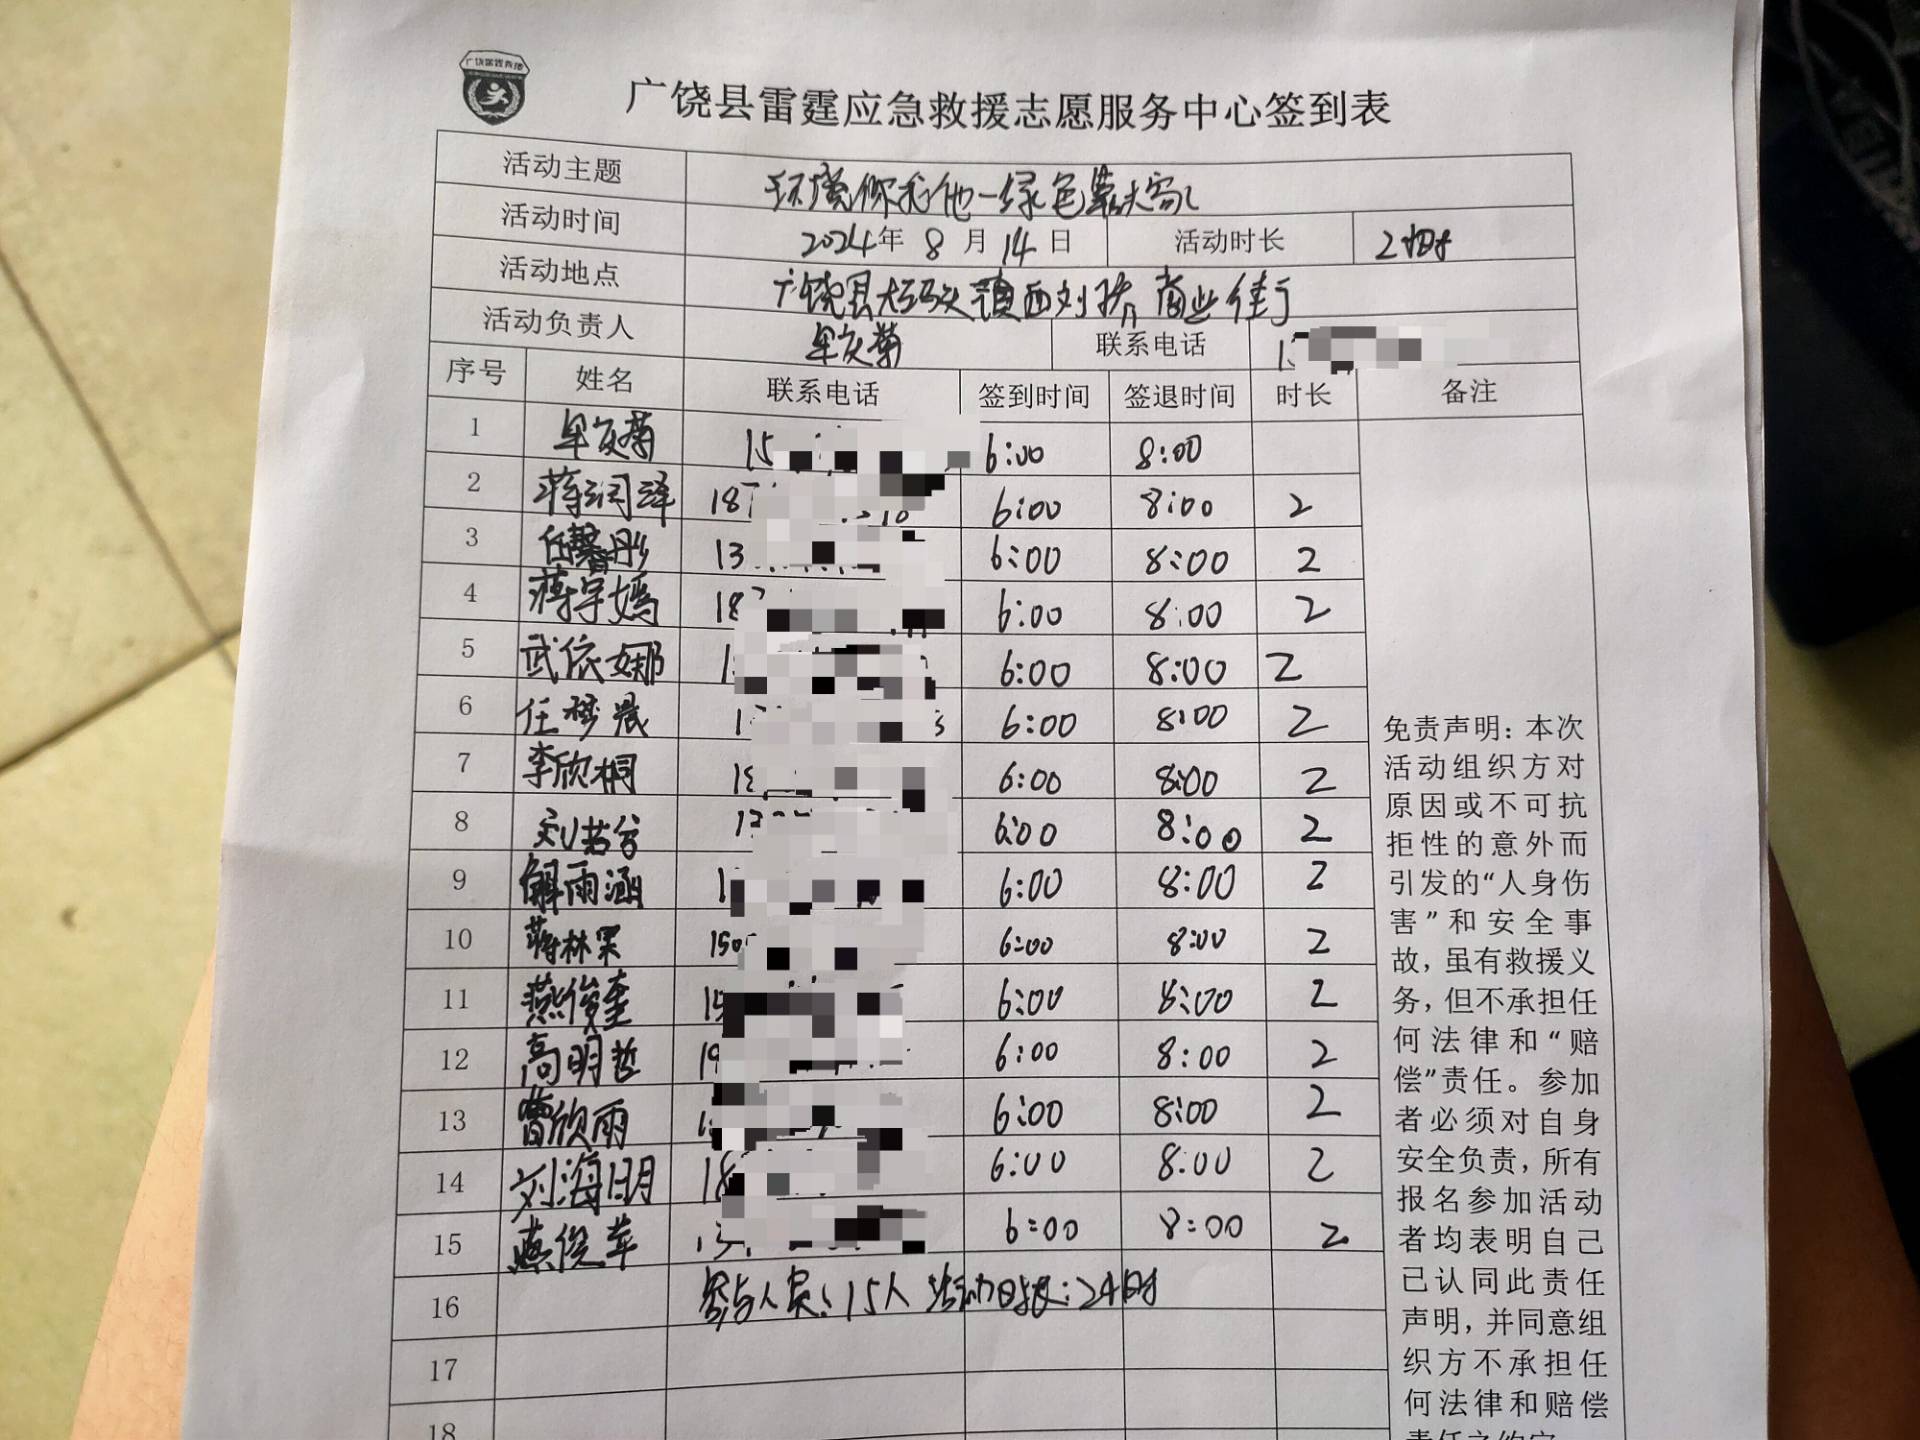 广饶县雷霆应急救援志愿服务中心签到表
活动主题 环境你我他一绿色靠大家
活动时间 2024年 8 月 14 日 活动时长 2小时
活动地点 广饶县大码头镇西刘桥商业街
活动负责人 联系电话 1
序号 姓名 联系电话 签到时间 签退时间 时长 备注
1 15 6:00 8:00
2 蒋润泽 187 6:00 8:00 2
3 任馨彤 13 6:00 8:00 2
4 蒋宇嫣 18 6:00 8:00 2
5 武依娜 1 6:00 8:00 2
6 任梦晨 1 6:00 8:00 2
7 李欣桐 6:00 8:00 2
8 刘若兮 6:00 8:00 2
9 解雨涵 1 6:00 8:00 2
10 蒋林果 150 6:00 8:00 2
11 燕俊奎 6:00 8:00 2
12 高明哲 19 6:00 8:00 2
13 曹欣雨 6:00 8:00 2
14 刘海明 18 6:00 8:00 2
15 燕俊苹 6:00 8:00 2
16 参与人员:15人 活动时长:2小时
17
18
免责声明:本次
活动组织方对
原因或不可抗
拒性的意外而
引发的“人身伤
害”和安全事
故,虽有救援义
务,但不承担任
何法律和“赔
偿”责任。参加
者必须对自身
安全负责,所有
报名参加活动
者均表明自己
已认同此责任
声明,并同意组
织方不承担任
何法律和赔偿